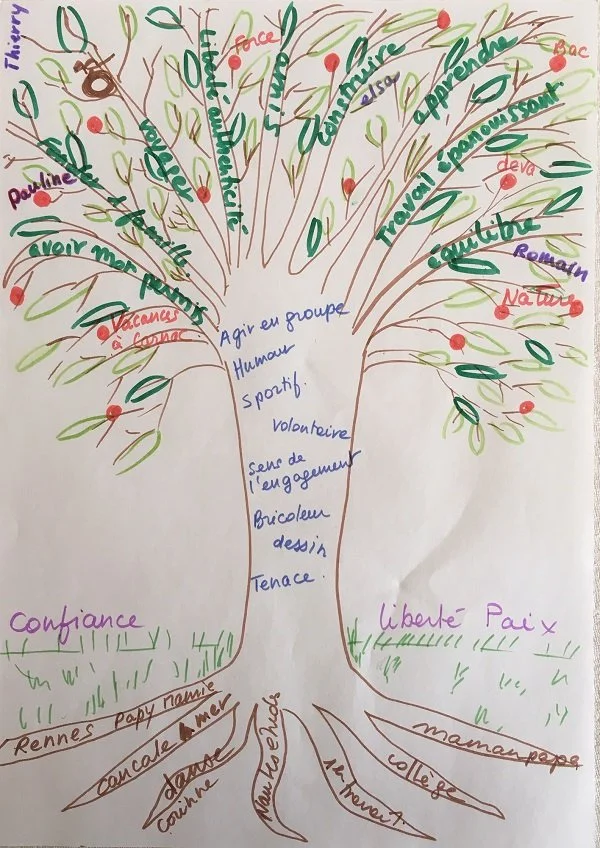 Thierry
Force
Liberté authenticité
construire
elsa
apprendre
Bac
voyager
Travail épanouissant
deva
Pauline
famille.
équilibre
Romain
avoir mon permis
Nature
Vacances
à
Agir en groupe
Humour
Sportif.
volontaire
Sens de
l'engagement
Bricoleur
dessin
Tenace.
Confiance
liberté Paix
Rennes Papy Mamie
cancale la mer
danse
corinne
1er travail.
collège
maman papa